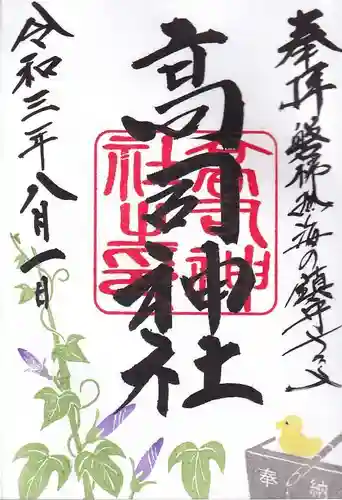 奉拝 磐梯熱海の鎮守さま
高司神社
高司神
社之印
令和三年八月一日
奉納